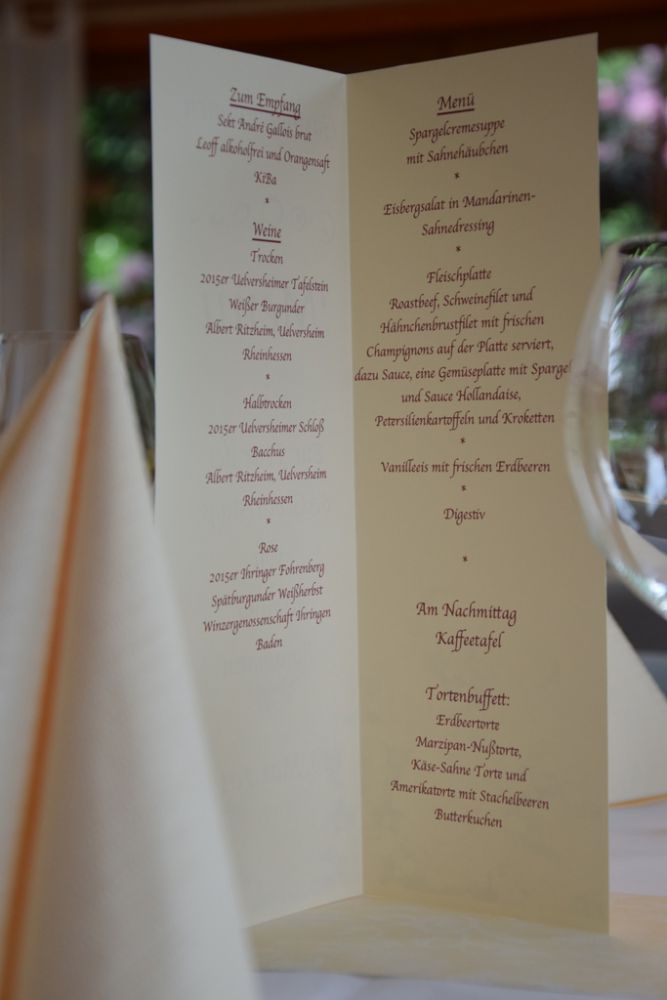 Zum Empfang
Sekt André Gallois brut
Leoff alkoholfrei und Orangensaft
KiBa
*
Weine
Trocken
2015er Uelversheimer Tafelstein
Weißer Burgunder
Albert Ritzheim, Uelversheim
Rheinhessen
*
Halbtrocken
2015er Uelversheimer Schloß
Bacchus
Albert Ritzheim, Uelversheim
Rheinhessen
*
Rose
2015er Ihringer Fohrenberg
Spätburgunder Weißherbst
Winzergenossenschaft Ihringen
Baden
Menü
Spargelcremesuppe
mit Sahnehäubchen
*
Eisbergsalat in Mandarinen-
Sahnedressing
*
Fleischplatte
Roastbeef, Schweinefilet und
Hähnchenbrustfilet mit frischen
Champignons auf der Platte serviert,
dazu Sauce, eine Gemüseplatte mit Spargel
und Sauce Hollandaise,
Petersilienkartoffeln und Kroketten
*
Vanilleeis mit frischen Erdbeeren
*
Digestiv
*
Am Nachmittag
Kaffeetafel
Tortenbuffett:
Erdbeertorte
Marzipan-Nußtorte,
Käse-Sahne Torte und
Amerikatorte mit Stachelbeeren
Butterkuchen